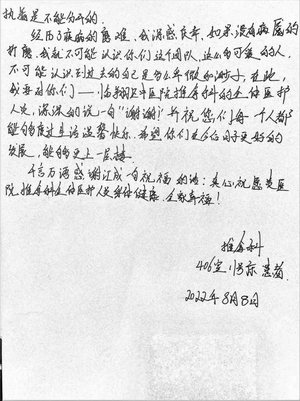 执着是不能分开的。
经历了疾病的磨难，我深感良卒，如果没有病魔的
折磨，我就不可能认识你们这个团队，这么的可爱的人，
不可能认识到过去的自己是多么的
我要对你们——医院推拿科的全体医护
人员，深深的说一句"谢谢"并祝您们每一个人都
能够度过生活温馨快乐，希望你们在今后的日子更好的
发展，能够更上一层楼。
千言万语感谢汇成一句祝福的语：真心祝愿贵医
院，推拿科全体医护人员身体健康，全家幸福！
推拿科
406室 患者
2022年8月8日